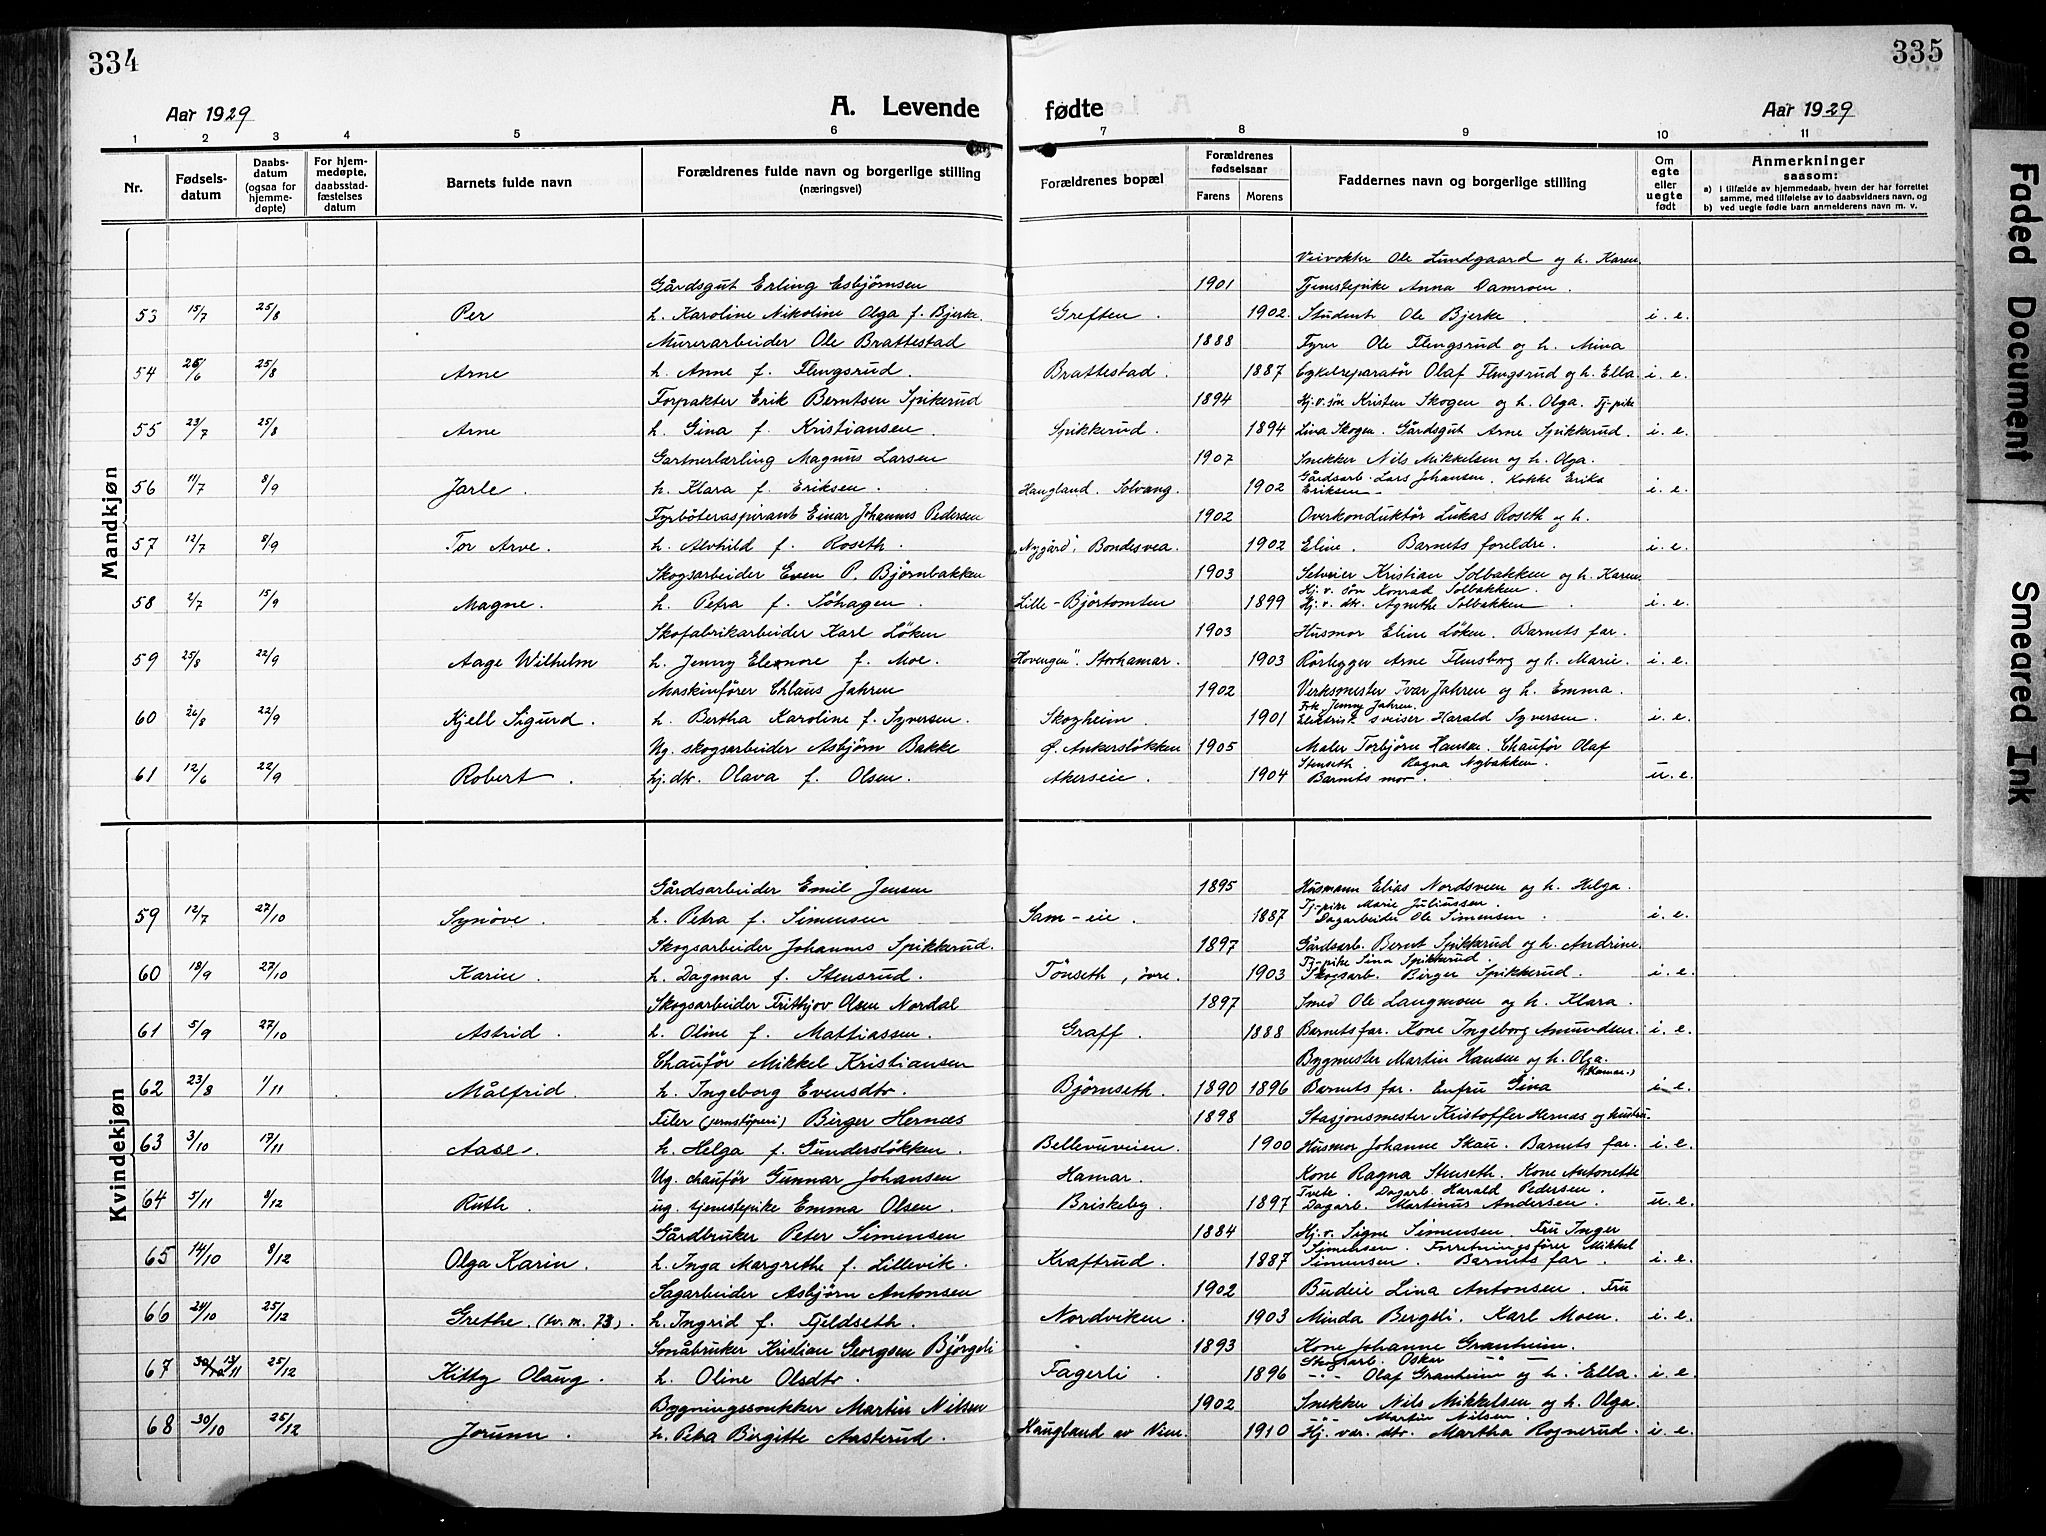 334
335
Aar 1929
A. Levende fødte
Aar 1929
1 2 3 4 5 6 7 8 9 10 11
Nr.
Fødsels-datum
Daabs-datum (ogsaa for hjemme-døpte)
For hjem-medøpte, daabsstad-fæstelses datum
Barnets fulde navn
Forældrenes fulde navn og borgerlige stilling (næringsvei)
Forældrenes bopæl
Forældrenes fødselsaar
Farens Morens
Faddernes navn og borgerlige stilling
Om egte eller uegte født
Anmerkninger saasom:
a) i tilfælde av hjemmedaab, hvem der har forrettet samme, med tilføielse av to daabsvidners navn, og
b) ved uegte fødte barn anmelderens navn m. v.
Mandkjøn
Veivokter Ole Lundgaard og h. Karen.
Gårdsgut Erling Esbjørnsen 1901 Tjenestepike Anna Damroen.
53 15/7 25/8 Per h. Karoline Nikoline Olga f. Bjerke. Greften. 1902. Student Ole Bjerke. i. e.
Murerarbeider Ole Brattestad 1888 Fyrb Ole Flengsrud og h. Mina
54 26/6 25/8 Arne h. Anne f. Flengsrud. Brattestad. 1887 Cykelreparatør Olaf Flengsrud og h. Ella i. e.
Forpakter Erik Berntsen Spikkerud 1894 Hj. v. søn Kristen Skogen og h. Olga. Tj-pike
55 23/7 25/8 Arne h. Gina f. Kristiansen. Spikkerud. 1894 Lina Skogen. Gårdsgut Arne Spikkerud. i. e.
Gartnerlærling Magnus Larsen 1907 Snekker Nils Mikkelsen og h. Olga.
56 11/7 8/9 Jarle. h. Klara f. Eriksen. Haugland. Solvang. 1902 Gårdsarb. Lars Johansen. Kokke Erika Eriksen. i. e.
Fyrbøteraspirant Einar Johannes Pedersen 1902 Overkonduktør Lukas Roseth og h.
57 12/7 8/9 Tor Arve. h. Alvhild f. Roseth. "Nygård", Bondesvea. 1902 Eline. Barnets foreldre. i. e.
Skogsarbeider Even P. Bjørnbakken 1903 Selveier Kristian Solbakken og h. Karen.
58 2/7 15/9 Magne. h. Petra f. Söhagen. Lille-Bjørtomten 1899 Hj. v. søn Konrad Solbakken. Hj. v. dtr. Agnethe Solbakken. i. e.
Skofabrikarbeider Karl Løken 1903 Husmor Eline Løken. Barnets far.
59 25/8 22/9 Aage Wilhelm h. Jenny Elenore f. Moe. Hovengen". Storhamar. 1903 Rørbygger Arne Flensborg og h. Marie. i. e.
Maskinfører Chlaus Jahren 1902 Verksmester Ivar Jahren og h. Emma.
60 26/8 22/9 Kjell Sigurd. h. Bertha Karoline f. Syversen. Skogheim. 1901 Frk. Jenny Jahren. Elektrisk sveiser Harald Syversen. i. e.
Ug. skogsarbeider Asbjørn Bakke Ø. Ankerløkken 1905 Maler Torbjørn Hansen. Chauför Olaf
61 12/6 22/9 Robert. hj. dtr. Olava f. Olsen. Akerseie. 1904 Stenseth. Ragna Nybakken. Barnets mor. u. e.
Kvindekjøn
Gårdsarbeider Emil Jensen 1895 Husmann Elias Nordsveen og h. Helga.
59 12/7 27/10 Synöve. h. Petra f. Simensen Sam-eie. 1887 Tj-pike Marie Juliussen. Dagarbeider Ole Simensen. i. e.
Skogsarbeider Johannes Spikkerud. 1897 Gårdsarb. Bernt Spikkerud og h. Andrine.
60 18/9 27/10 Karin. h. Dagmar f. Stensrud. Tönseth, övre. 1903 Tj-pike Lina Spikkerud. Skogsarb. Birger Spikkerud. i. e.
Skogsarbeider Frithjov Olsen Nordal 1897 Smed Ole Langmoen og h. Klara.
61 5/9 27/10 Astrid. h. Oline f. Mattiassen. Graff. 1888 Barnets far. Kone Ingeborg Amundsen. i. e.
Chauför Mikkel Kristiansen Bygmester Martin Hansen og h. Olga.
62 23/8 1/11 Målfrid. h. Ingeborg Evensdtr. Björnseth. 1890 1896 Barnets far. Enfru Gina i. e.
Filer (jernstöperi) Birger Hernæs 1898 Stasjonsmester Kristoffer Hernæs og hustru.
63 3/10 17/11 Aase. h. Helga f. Gundersløkken. Bellevuveien. 1900 Husmor Johanne Skau. Barnets far. i. e.
Ug. chauför Gunnar Johansen Hamar. Kone Ragna Stenseth. Kone Antonette
64 5/11 8/12 Ruth. ug. tjenestepike Emma Olsen. Briskeby. 1897 Tvete. Dagarb. Harald Pedersen. Dagarb. Martinus Andersen. u. e.
Gårdbruker Peter Simensen 1884 Hj. v. Signe Simensen. Fru Inger
65 14/10 8/12 Olga Karin. h. Inga Margrethe f. Lillevik. Kraftrud. 1887 Simensen. Forretningsfører Mikkel Simensen. Barnets far. i. e.
Sagarbeider Asbjørn Antonsen 1902 Budeie Lina Antonsen. Fru
66 24/10 25/12 Grethe. (tv. m. 73). h. Ingrid f. Fjeldseth. Nordviken. 1903 Minda Bergsli. Karl Moen. i. e.
Småbruker Kristian Georgsen Björgeli 1893 Kone Johanne Granheim.
67 13/11 25/12 Kitty Olaug. h. Oline Olsdtr. Fagerli. 1896 Skogsarb. Oskar -"- -"- Olaf Granheim og h. Ella. i. e.
Bygningssnekker Martin Nilsen 1902 Snekker Nils Mikkelsen og h. Olga.
68 30/10 25/12 Jorunn. h. Petra Birgitte Aasterud. Haugland av Vien. 1910 -"- Martin Nilsen. Hj. vær. dtr. Martha Rognerud. i. e.
Faded Document
Smeared Ink